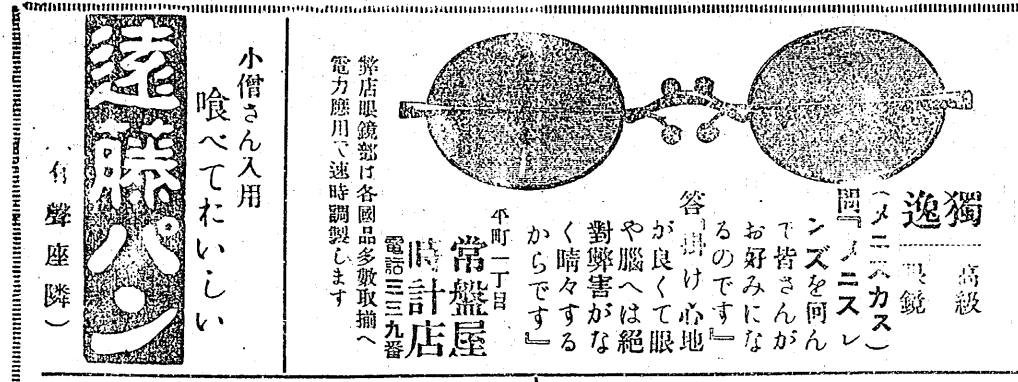 獨逸
高級
眼鏡
(メニスカス)
問『メニスレ
ンズを何ん
で皆さんが
お好みにな
るのです』
答『掛け心地
が良くて眼
や腦へは絕
對弊害がな
く晴々する
からです』
平町一丁目
常盤屋
時計店
電話三三九番
弊店眼鏡部は各國品多數取揃へ
電力應用で速時調製します
小僧さん入用
喰べておいしい
遠藤パン
(有聲座隣)